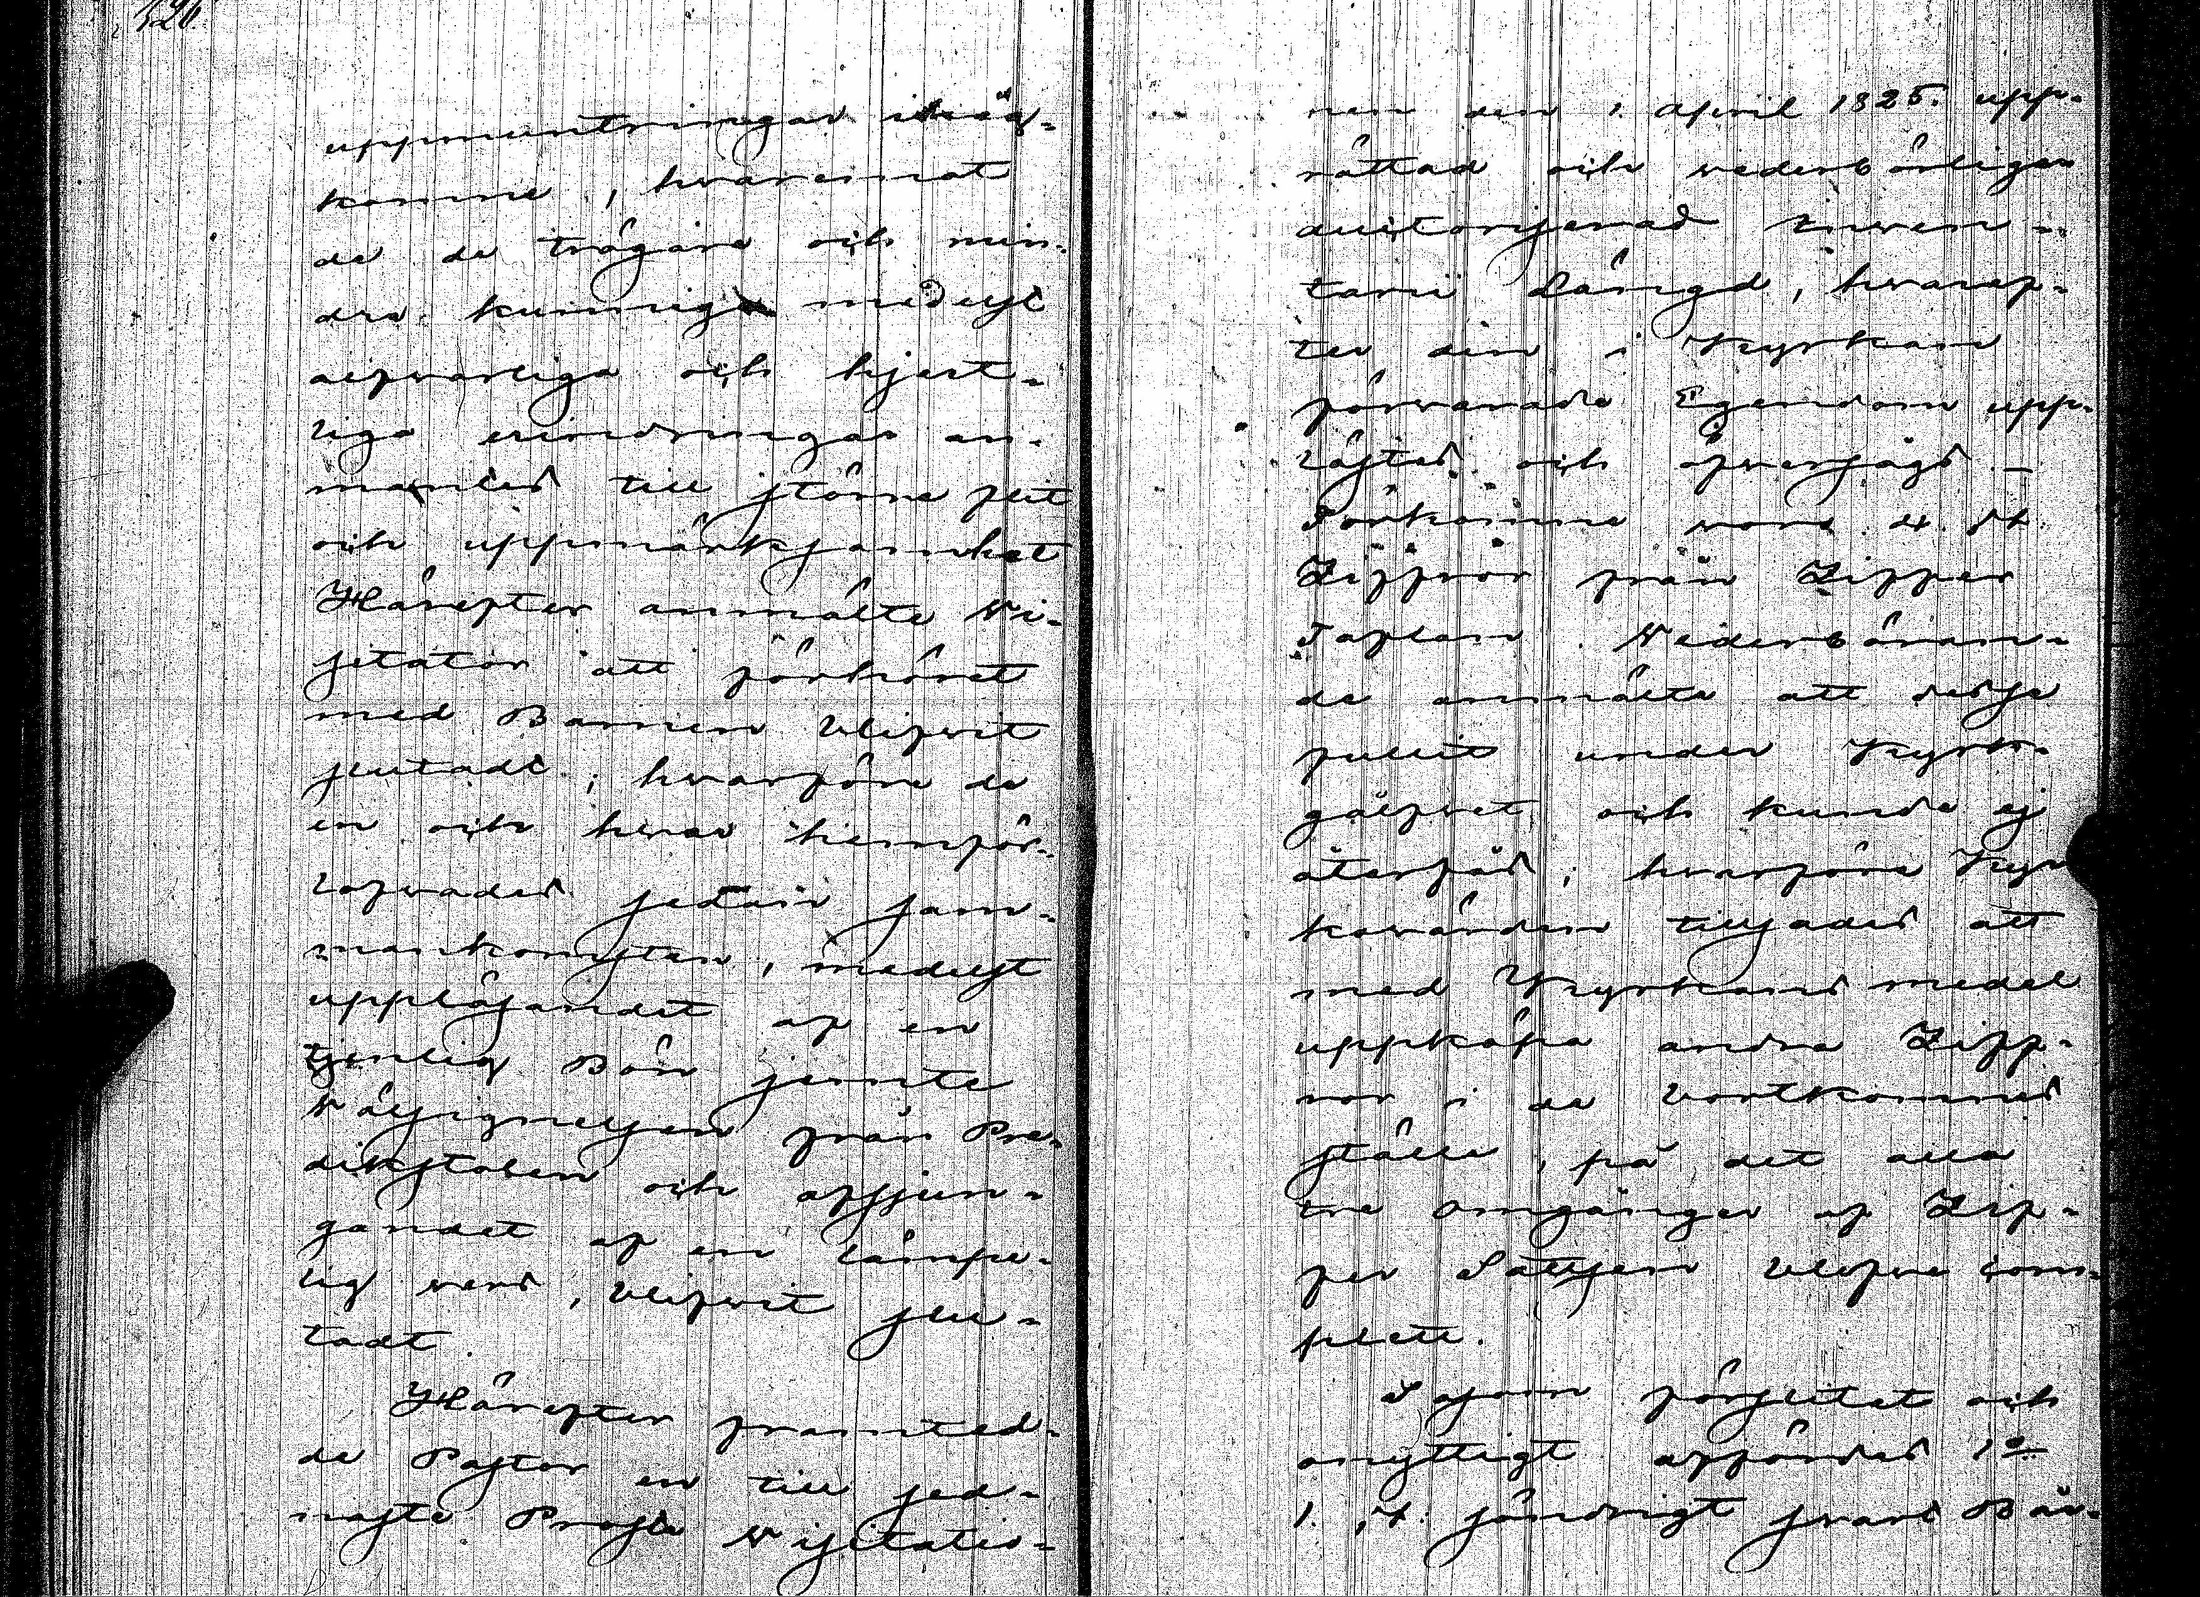 126.
uppmuntringar ihog-
komne, hvaremot
de de trögare och min-
dre kunniga medelst
alfvarliga och hjert-
liga erindringar an-
mantes till större flit
och uppmärksamhet
Härefter anmälte Vi-
sitator att förhöret
med Barnen blifvit
slutadt; hvarföre de
en och hvar hemför-
lofvades sedan sam-
mankomsten, medelst
uppläsandet af en
tjenlig Bön jemte
Välsignelsen från Pre-
dikstolen och afsjun-
gandet af en lämpe-
lig vers, blifvit slu-
tadt.
Härefter framted-
de Pastor en till sed-
naste Prosts Visitatio-
nen den 1. April 1825. upp-
rättad och vederbörligen
auctoriserad Inven-
tarii Längd, hvaref-
ter den i Kyrkan
förvarade Egendom upp-
lästes och öfversågs. –
Förkomne voro 4. st.
Ziffror från Ziffer
Taflan. Vederböran-
de anmälte att desse
fallit under Kyrk-
golfvet och kunde ej
återfås; hvarföre Kyr
kovärden tillsades att
med Kyrkans medel
uppköpa andra Ziff-
ror i de bortkomnes
ställe, på det alla
tre omgångar af Zif-
fer Satsen blefve com-
plett.
Såsom förslitet och
onyttigt affördes 1o
1. st. söndrigt svart Bår-